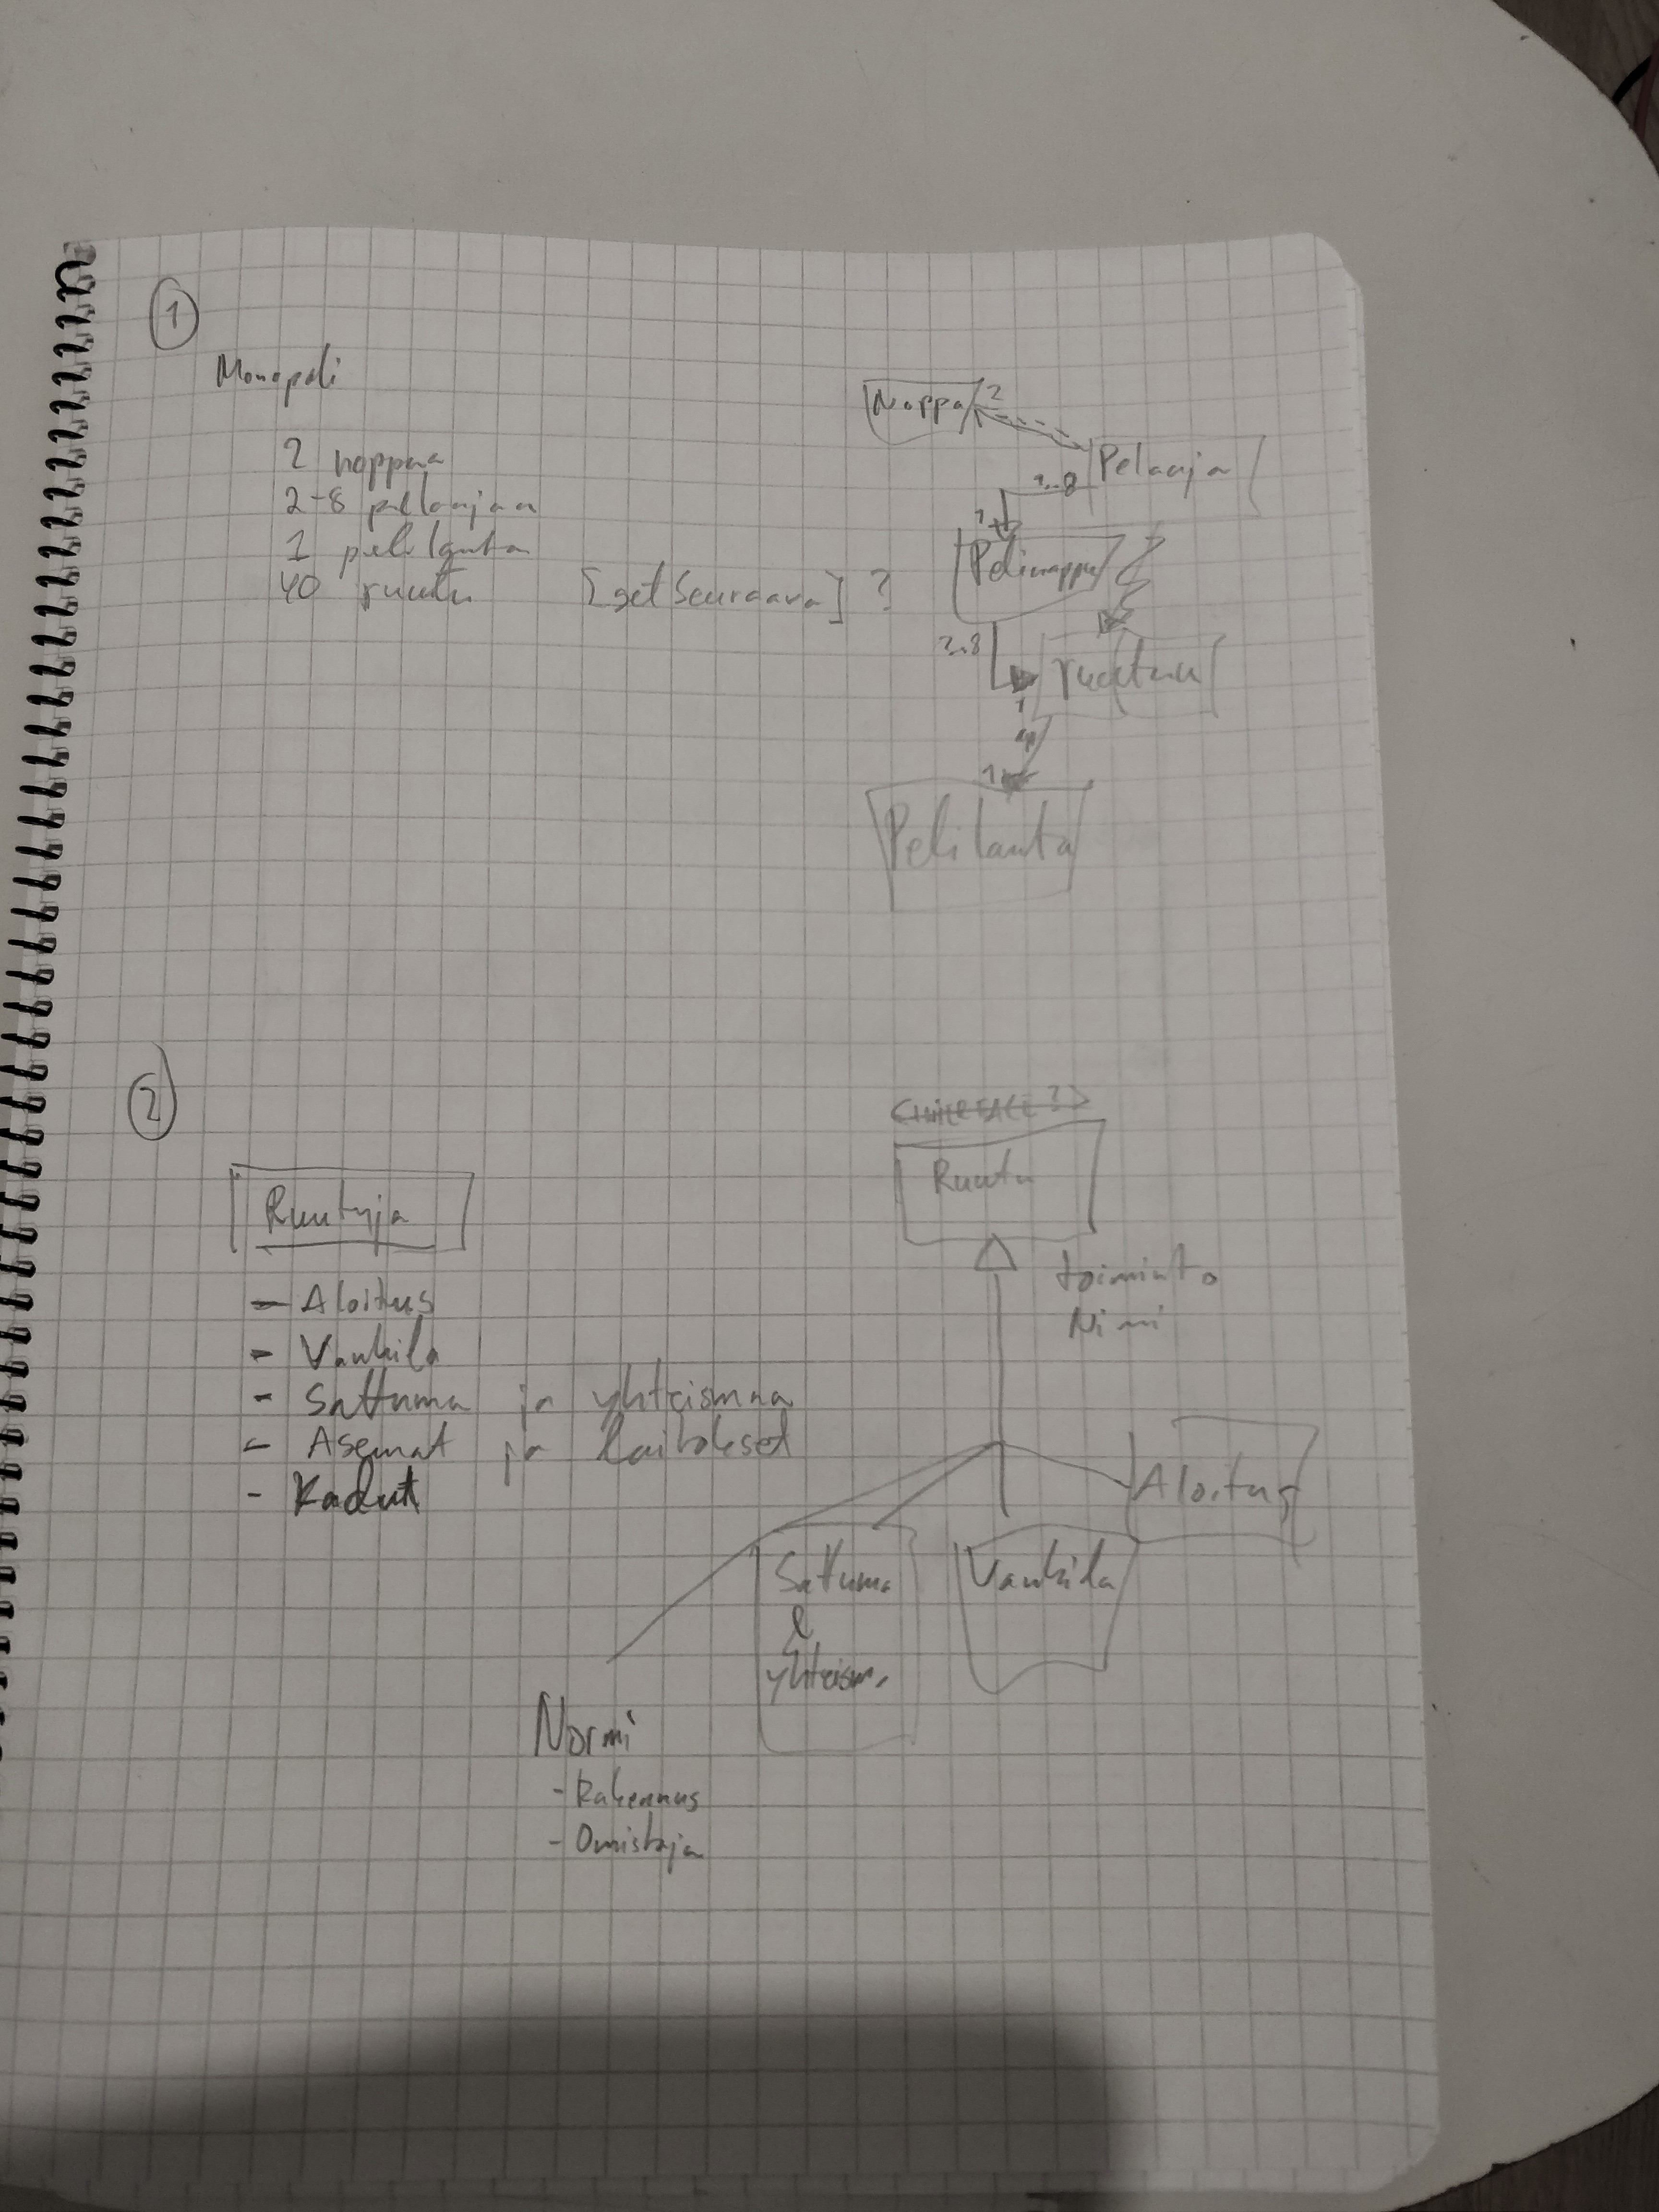 1
Monopoli
2 noppaa
2-8 pelaajaa
1 pelilauta
40 ruutu [getSeuraava] ?
Noppa 2
Pelaaja
2..8
1
Pelinappu
2..8
ruutuu
1
1
Pelilauta
2
Ruutuja
- Aloitus
- Vankila
- Sattuma ja yhteismaa
- Asemat ja laitokset
- Kadut
<INTERFACE?>
Ruutu
toiminto
Nimi
Aloitus
Vankila
Sattuma
&
yhteism.
Normi
- Rakennus
- Omistaja